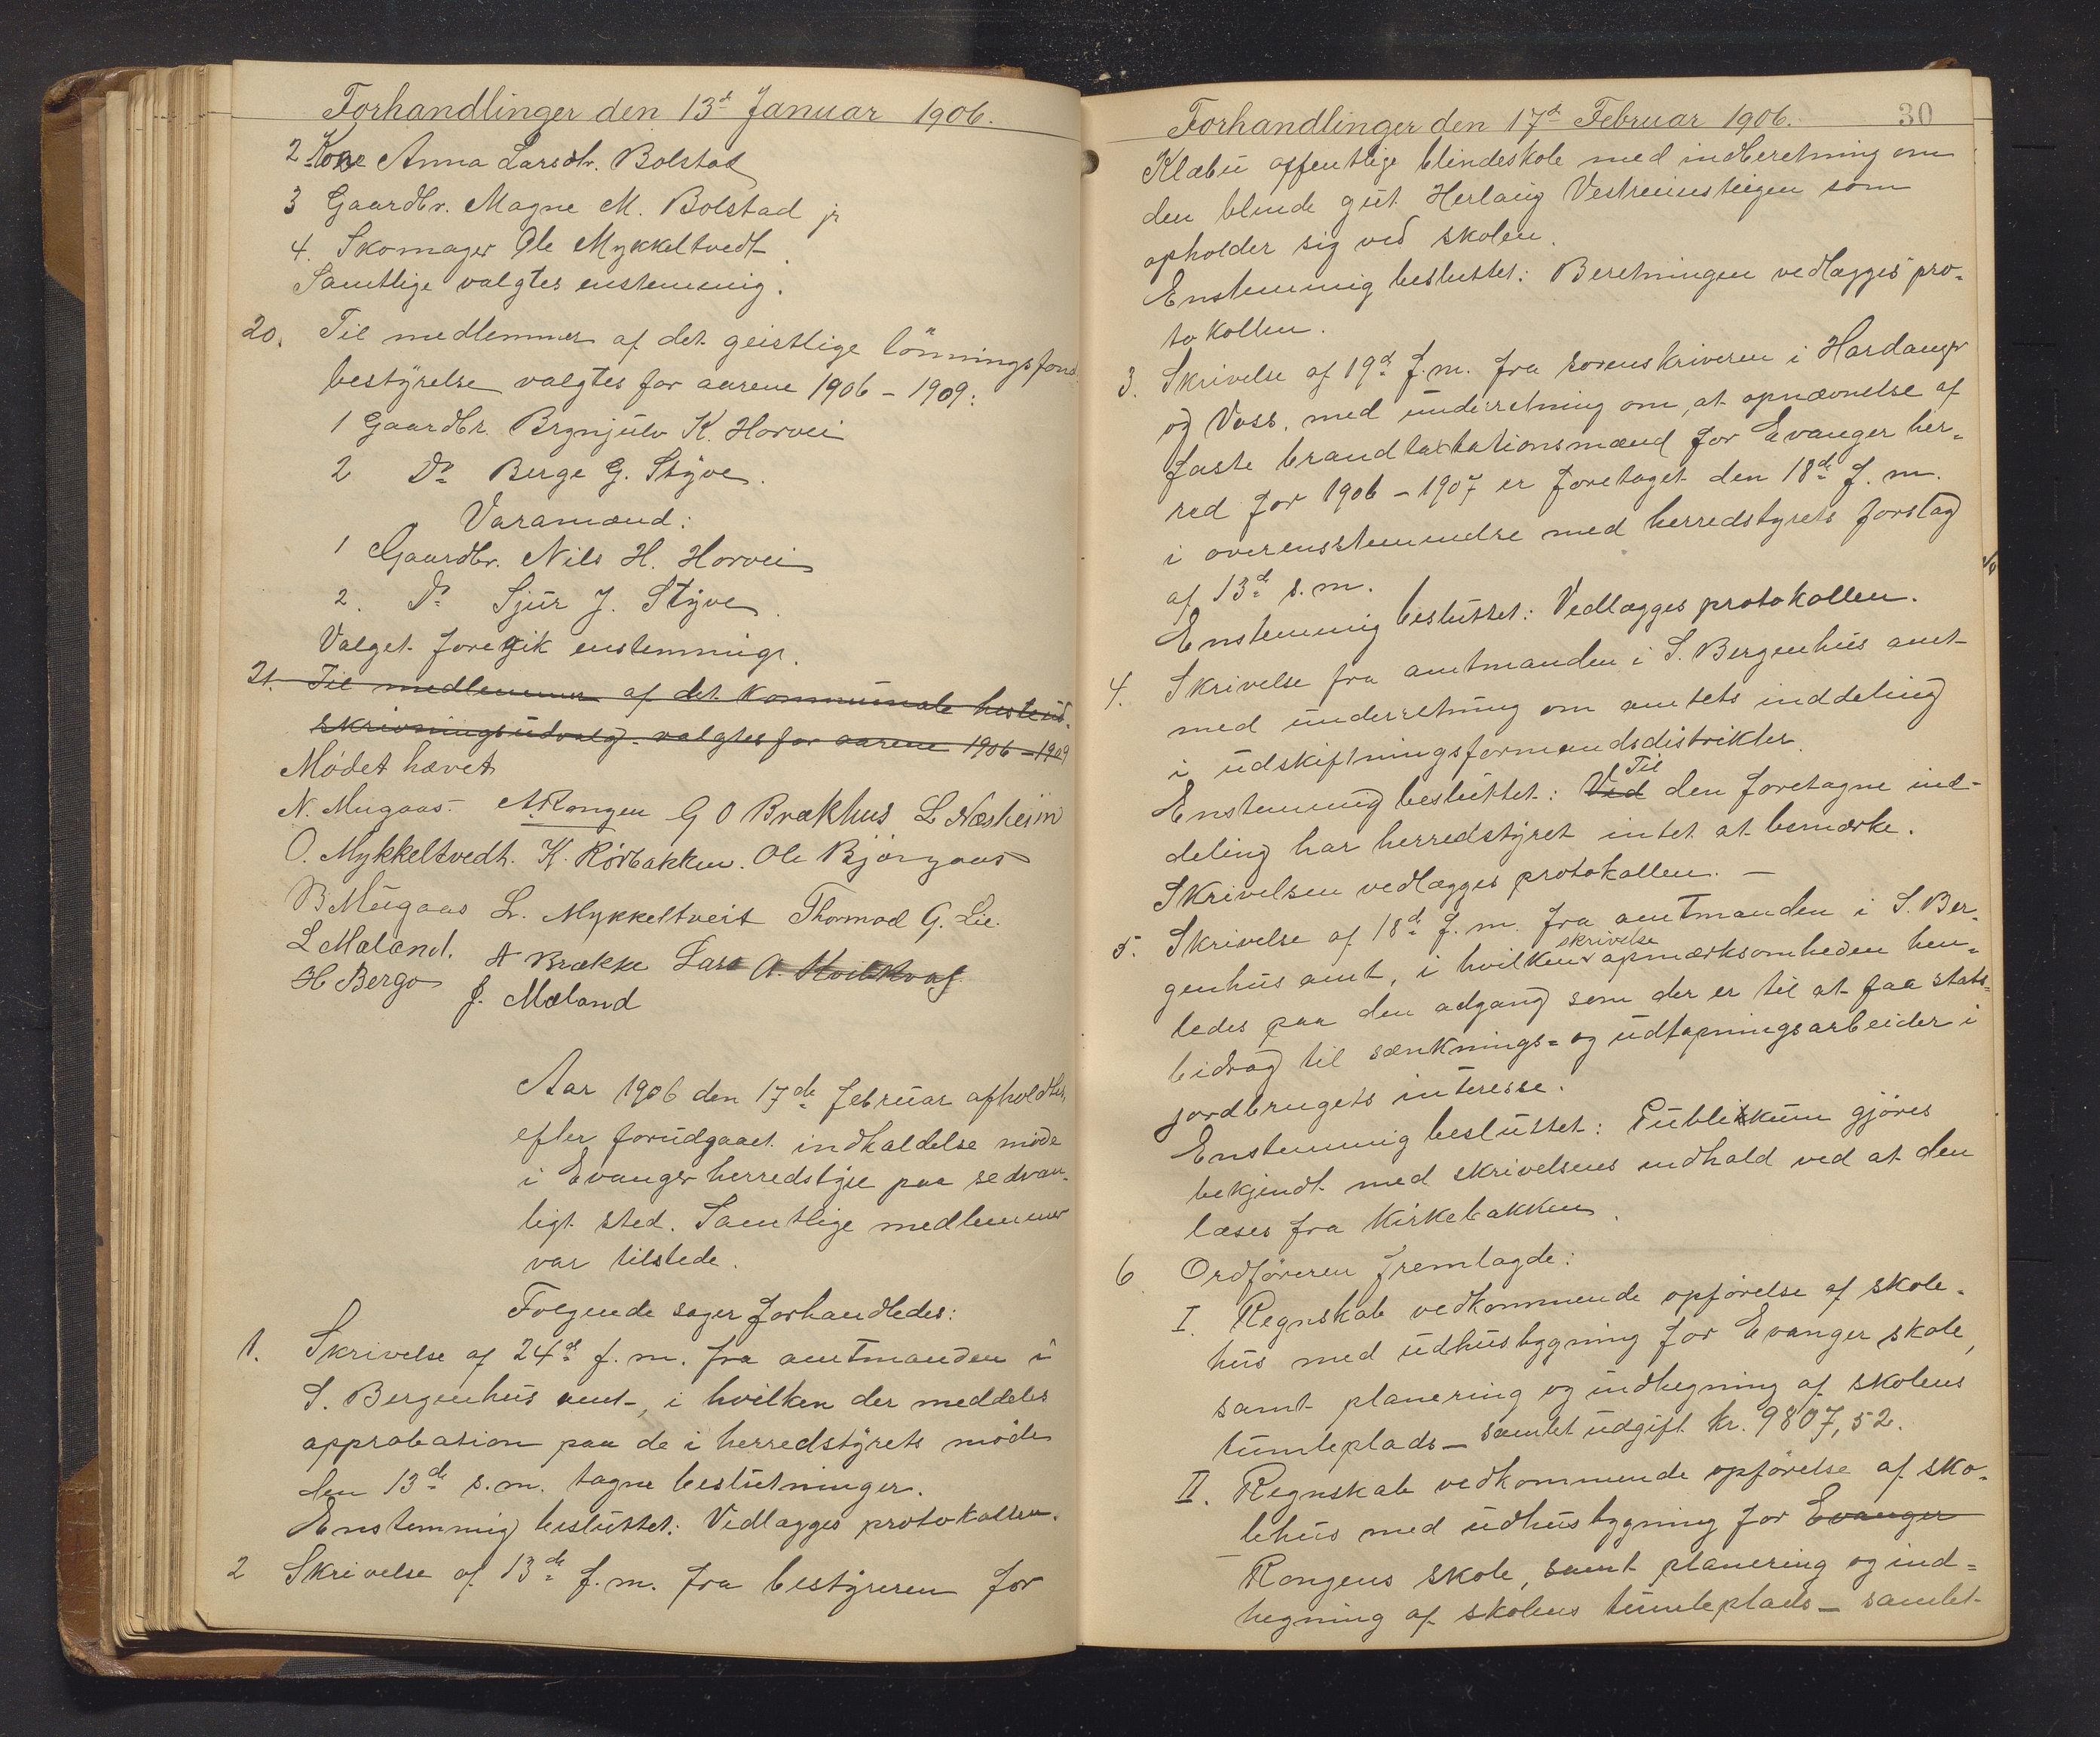 Forhandlinger den 13de Januar 1906.
2 Kone Anna Larsdtr. Bolstad
3 Gaardbr. Magne M. Bolstad jr
4. Skomager Ole Mykkeltvedt.
Samtlige valgtes enstemmig.
20. Til medlemmer af det geistlige lönningsfond-
bestyrelse valgtes for aarene 1906 - 1909:
1 Gaardbr. Brynjulv K. Horvei
2 Do Berge G. Styve.
Varamænd:
1 Gaardbr. Nils H. Horvei
2. Do Sjur J. Styve.
Valget foregik enstemmigt.
21. Til medlemmer af det kommunale hesteud-
skrivningsudvalg valgtes for aarene 1906 - 1909
Mödet hævet
N. Mugaas. A. Rongen G O Brækhus L Næsheim
O. Mykkeltvedt. K. Rörbakken. Ole Bjørgaas
B Mugaas L. Mykkeltveit Thormod G. Lie.
L Mæland. A Brække Lars A.
H Bergo J. Mæland
Aar 1906 den 17de februar afholdtes
efter forudgaaet indkaldelse möde
i Evanger herredstyre paa sedvan-
ligt sted. Samtlige medlemmer
var tilstede.
Følgende sager forhandledes:
1. Skrivelse af 24de f. m. fra amtmanden i
S. Bergenhus amt, i hvilken der meddeles
approbation paa de i herredstyrets möde
den 13de s. m. tagne beslutninger.
Enstemmig besluttet: Vedlægges protokollen.
2 Skrivelse af 13de f. m. fra bestyreren for
Forhandlinger den 17de Februar 1906. 30
Klæbu offentlige blindeskole med indberetning om
den blinde gut Herlaug som
opholder sig ved skolen.
Enstemmig besluttet: Beretningen vedlægges pro-
tokollen.
3. Skrivelse af 19de f. m. fra sorenskriveren i Hardanger
og Voss, med underretning om, at opnævnelse af
faste brandtaxtationsmænd for Evanger her-
red for 1906 - 1907 er foretaget den 18de f. m.
i overensstemmelse med herredstyrets forslag
af 13de s. m.
Enstemmig besluttet: Vedlægges protokollen.
4. Skrivelse fra amtmanden i S. Bergenhus amt
med underretning om amtets inddeling
i udskiftningsformandsdistrikter.
Til
Enstemmig besluttet: Ved den foretagne ind-
deling har herredstyret intet at bemærke.
Skrivelsen vedlægges protokollen. —
5. Skrivelse af 18de f. m. fra amtmanden i S. Ber-
skrivelse
genhus amt, i hvilken opmærksomheden hen-
ledes paa den adgang som der er til at faa stats-
bidrag til sænknings- og udtapningsarbeider i
jordbrugets interesse.
Enstemmig besluttet: Publikum gjöres
bekjendt med skrivelsens indhold ved at den
læses fra kirkebakken.
6 Ordföreren fremlagde:
I. Regnskab vedkommende opförelse af skole-
hus med udhusbygning for Evanger skole,
samt planering og indhegning af skolens
tumleplads — samlet udgift kr. 9807,52.
II. Regnskab vedkommende opförelse af sko-
lehus med udhusbygning for Evanger
Rongens skole, samt planering og ind-
hegning af skolens tumleplads — samlet